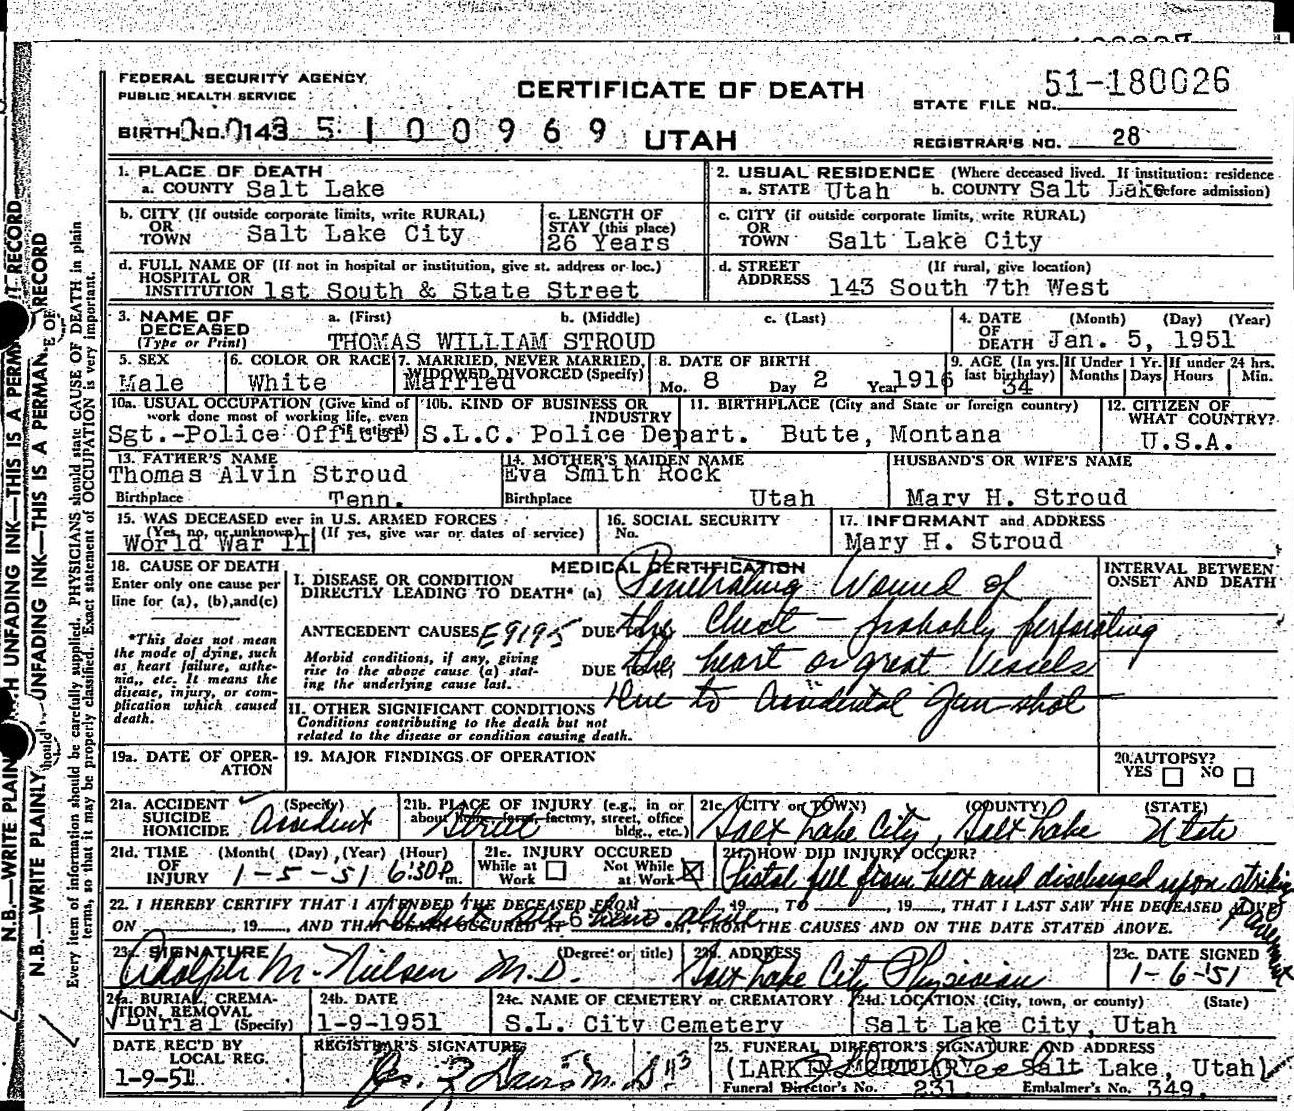 FEDERAL SECURITY AGENCY
PUBLIC HEALTH SERVICE
CERTIFICATE OF DEATH
UTAH
51-180026
STATE FILE NO.
BIRTH NO. 143 5 1 0 0 9 6 9
REGISTRAR'S NO. 28
1. PLACE OF DEATH
a. COUNTY Salt Lake
2. USUAL RESIDENCE (Where deceased lived. If institution: residence before admission)
a. STATE Utah b. COUNTY Salt Lake
b. CITY (If outside corporate limits, write RURAL)
OR
TOWN Salt Lake City
c. LENGTH OF
STAY (this place)
26 Years
c. CITY (if outside corporate limits, write RURAL)
OR
TOWN Salt Lake City
d. FULL NAME OF (If not in hospital or institution, give st. address or loc.)
HOSPITAL OR
INSTITUTION 1st South & State Street
d. STREET (If rural, give location)
ADDRESS 143 South 7th West
3. NAME OF
DECEASED
(Type or Print)
a. (First) b. (Middle) c. (Last)
THOMAS WILLIAM STROUD
4. DATE (Month) (Day) (Year)
OF
DEATH Jan. 5, 1951
5. SEX
Male
6. COLOR OR RACE
White
7. MARRIED, NEVER MARRIED,
WIDOWED DIVORCED (Specify)
Married
8. DATE OF BIRTH
Mo. 8 Day 2 Year 1916
9. AGE (In yrs. last birthday)
34
If Under 1 Yr.
Months Days
If under 24 hrs.
Hours Min.
10a. USUAL OCCUPATION (Give kind of
work done most of working life, even
if retired)
Sgt.-Police Officer
10b. KIND OF BUSINESS OR
INDUSTRY
S.L.C. Police Depart.
11. BIRTHPLACE (City and State or foreign country)
Butte, Montana
12. CITIZEN OF
WHAT COUNTRY?
U.S.A.
13. FATHER'S NAME
Thomas Alvin Stroud
Birthplace Tenn.
14. MOTHER'S MAIDEN NAME
Eva Smith Rock
Birthplace Utah
HUSBAND'S OR WIFE'S NAME
Mary H. Stroud
15. WAS DECEASED ever in U.S. ARMED FORCES
(Yes, no, or unknown) (If yes, give war or dates of service)
World War II
16. SOCIAL SECURITY
No.
17. INFORMANT and ADDRESS
Mary H. Stroud
18. CAUSE OF DEATH
Enter only one cause per
line for (a), (b), and (c)
*This does not mean
the mode of dying, such
as heart failure, asthe-
nia, etc. It means the
disease, injury, or com-
plication which caused
death.
MEDICAL CERTIFICATION
INTERVAL BETWEEN
ONSET AND DEATH
I. DISEASE OR CONDITION
DIRECTLY LEADING TO DEATH* (a) Penetrating Wound of
ANTECEDENT CAUSES E9195 DUE TO (b) the Chest - probably perforating
Morbid conditions, if any, giving
rise to the above cause (a) stat-
ing the underlying cause last.
DUE TO (c) the heart or great vessels
Due to Accidental Gun shot
II. OTHER SIGNIFICANT CONDITIONS
Conditions contributing to the death but not
related to the disease or condition causing death.
19a. DATE OF OPER-
ATION
19. MAJOR FINDINGS OF OPERATION
20. AUTOPSY?
YES NO
21a. ACCIDENT (Specify)
SUICIDE
HOMICIDE Accident
21b. PLACE OF INJURY (e.g., in or
about home, farm, factory, street, office
bldg., etc.)
Street
21c. (CITY or TOWN) (COUNTY) (STATE)
Salt Lake City, Salt Lake Utah
21d. TIME (Month) (Day) (Year) (Hour)
OF
INJURY 1-5-51 6:30 P m.
21e. INJURY OCCURED
While at Work Not While at Work
21f. HOW DID INJURY OCCUR?
Pistol fell from belt and discharged upon striking
Pavement
22. I HEREBY CERTIFY THAT I ATTENDED THE DECEASED FROM 19 , TO , 19 , THAT I LAST SAW THE DECEASED ALIVE
ON , 19 , AND THAT DEATH OCCURED AT M. FROM THE CAUSES AND ON THE DATE STATED ABOVE.
23. SIGNATURE (Degree or title)
Adolph M. Nielsen M.D.
23b. ADDRESS
Salt Lake City Physician
23c. DATE SIGNED
1-6-51
24a. BURIAL, CREMA-
TION, REMOVAL
(Specify)
Burial
24b. DATE
1-9-1951
24c. NAME OF CEMETERY or CREMATORY
S.L. City Cemetery
24d. LOCATION (City, town, or county) (State)
Salt Lake City, Utah
DATE REC'D BY
LOCAL REG.
1-9-51
REGISTRAR'S SIGNATURE
25. FUNERAL DIRECTOR'S SIGNATURE AND ADDRESS
Salt Lake, Utah
Funeral Director's No. 231 Embalmer's No. 349
N.B.—WRITE PLAINLY UNFADING INK—THIS IS A PERMANENT RECORD
Every item of information should be carefully supplied. PHYSICIANS should state CAUSE OF DEATH in plain
terms, so that it may be properly classified. Exact statement of OCCUPATION is very important.